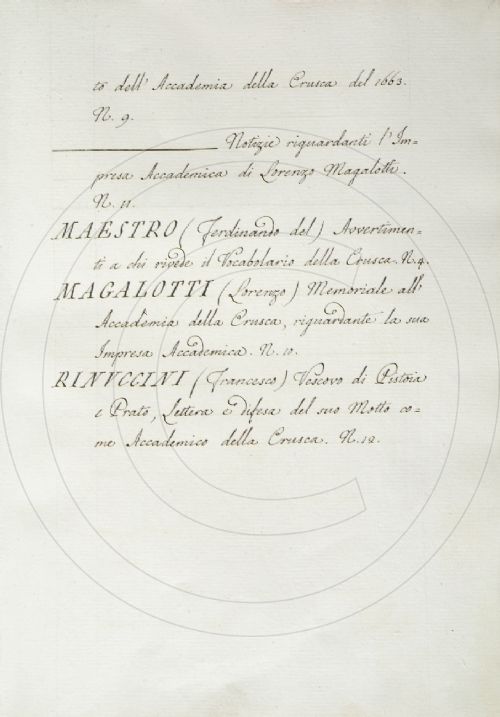 to dell' Accademia della Crusca del 1663.
N. 9.
Notizie riguardanti l'Im=
presa Accademica di Lorenzo Magalotti.
N. 11.
MAESTRO (Ferdinando del) Avvertimen=
ti a chi rivede il Vocabolario della Crusca. N. 4.
MAGALOTTI (Lorenzo) Memoriale all'
Accademia della Crusca, riguardante la sua
Impresa Accademica. N. 10.
RINVCCINI (Francesco) Vescovo di Pistoia
e Prato, Lettera e difesa del suo Motto co=
me Accademico della Crusca. N. 12.